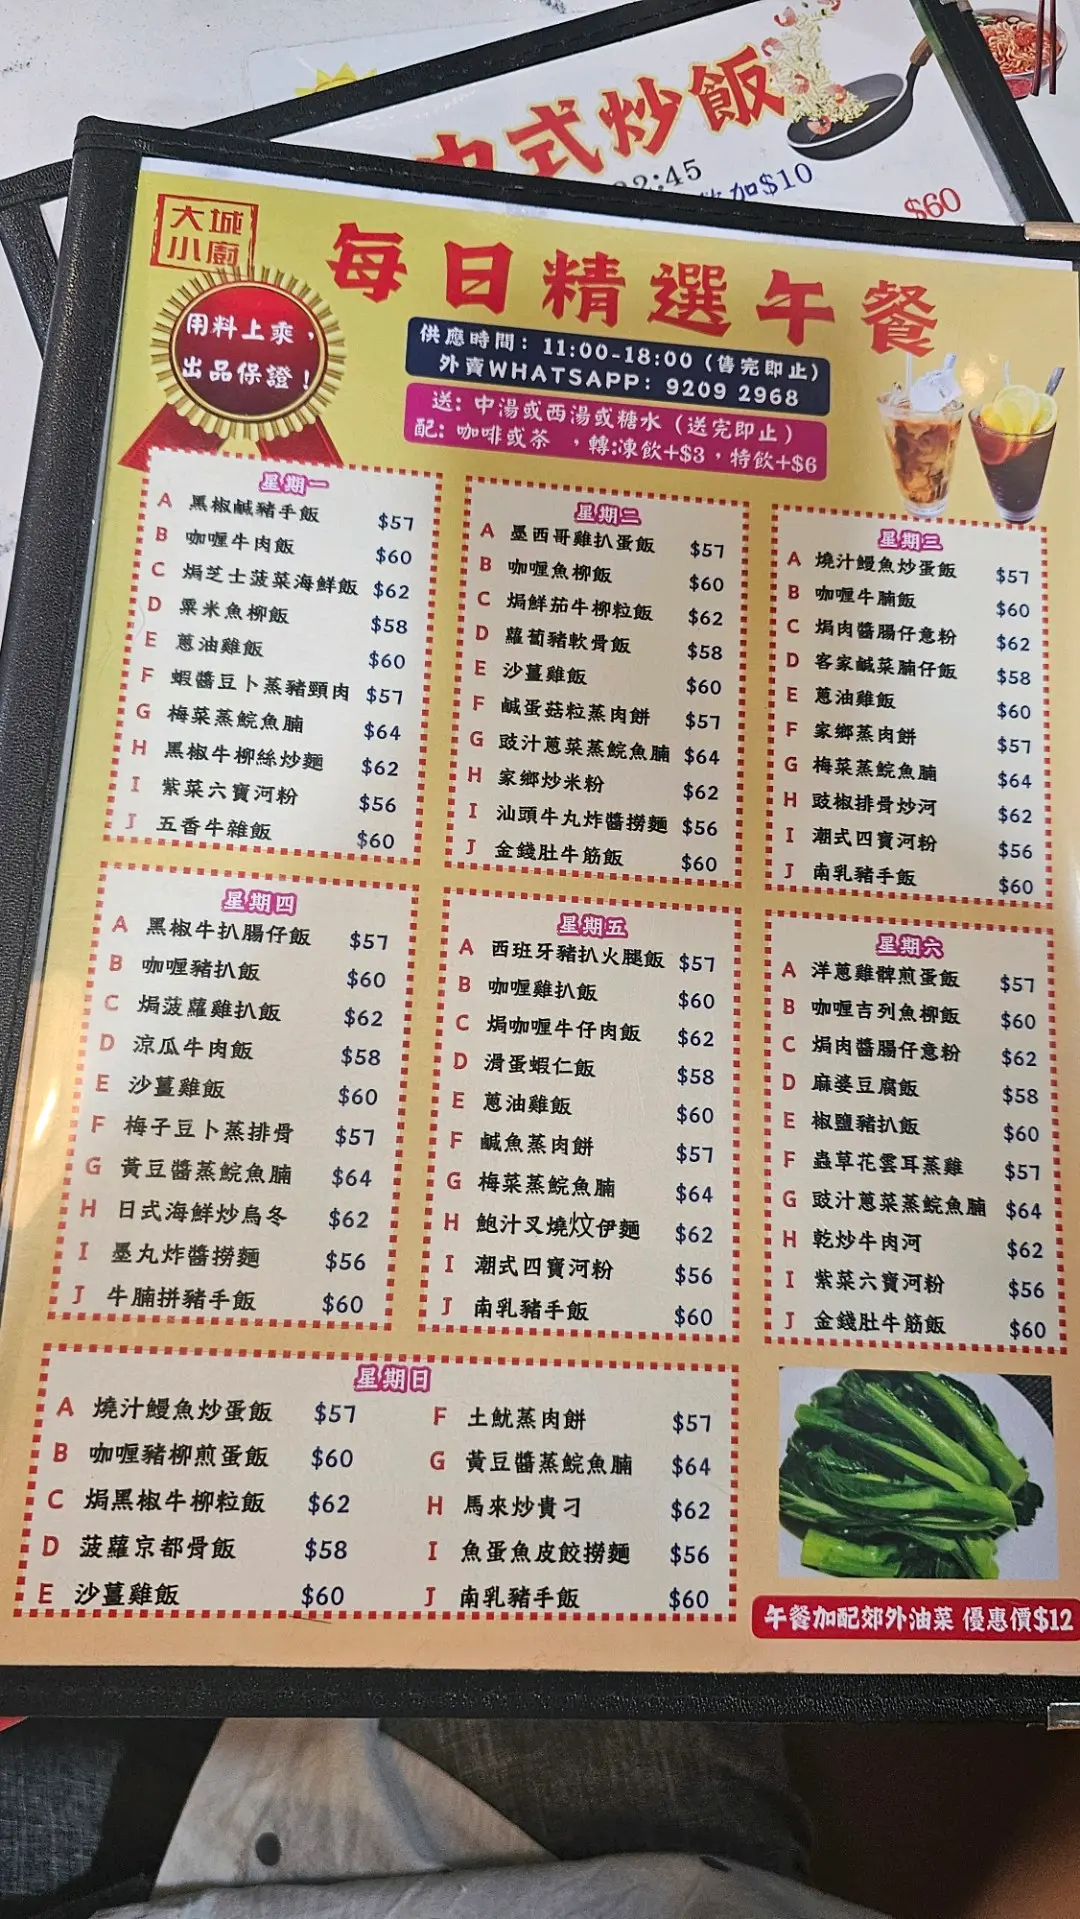 中式炒飯
02:45
飲加$10
$60
大城
小廚
用料上乘，
出品保證！
每日精選午餐
供應時間：11:00-18:00（售完即止）
外賣WHATSAPP：9209 2968
送：中湯或西湯或糖水（送完即止）
配：咖啡或茶 ，轉:凍飲+$3，特飲+$6
星期一
A 黑椒鹹豬手飯 $57
B 咖喱牛肉飯 $60
C 焗芝士菠菜海鮮飯 $62
D 粟米魚柳飯 $58
E 蔥油雞飯 $60
F 蝦醬豆卜蒸豬頸肉 $57
G 梅菜蒸鯇魚腩 $64
H 黑椒牛柳絲炒麵 $62
I 紫菜六寶河粉 $56
J 五香牛雜飯 $60
星期二
A 墨西哥雞扒蛋飯 $57
B 咖喱魚柳飯 $60
C 焗鮮茄牛柳粒飯 $62
D 蘿蔔豬軟骨飯 $58
E 沙薑雞飯 $60
F 鹹蛋菇粒蒸肉餅 $57
G 豉汁蔥菜蒸鯇魚腩 $64
H 家鄉炒米粉 $62
I 汕頭牛丸炸醬撈麵 $56
J 金錢肚牛筋飯 $60
星期三
A 燒汁鰻魚炒蛋飯 $57
B 咖喱牛腩飯 $60
C 焗肉醬腸仔意粉 $62
D 客家鹹菜腩仔飯 $58
E 蔥油雞飯 $60
F 家鄉蒸肉餅 $57
G 梅菜蒸鯇魚腩 $64
H 豉椒排骨炒河 $62
I 潮式四寶河粉 $56
J 南乳豬手飯 $60
星期四
A 黑椒牛扒腸仔飯 $57
B 咖喱豬扒飯 $60
C 焗菠蘿雞扒飯 $62
D 涼瓜牛肉飯 $58
E 沙薑雞飯 $60
F 梅子豆卜蒸排骨 $57
G 黃豆醬蒸鯇魚腩 $64
H 日式海鮮炒烏冬 $62
I 墨丸炸醬撈麵 $56
J 牛腩拼豬手飯 $60
星期五
A 西班牙豬扒火腿飯 $57
B 咖喱雞扒飯 $60
C 焗咖喱牛仔肉飯 $62
D 滑蛋蝦仁飯 $58
E 蔥油雞飯 $60
F 鹹魚蒸肉餅 $57
G 梅菜蒸鯇魚腩 $64
H 鮑汁叉燒炆伊麵 $62
I 潮式四寶河粉 $56
J 南乳豬手飯 $60
星期六
A 洋蔥雞髀煎蛋飯 $57
B 咖喱吉列魚柳飯 $60
C 焗肉醬腸仔意粉 $62
D 麻婆豆腐飯 $58
E 椒鹽豬扒飯 $60
F 蟲草花雲耳蒸雞 $57
G 豉汁蔥菜蒸鯇魚腩 $64
H 乾炒牛肉河 $62
I 紫菜六寶河粉 $56
J 金錢肚牛筋飯 $60
星期日
A 燒汁鰻魚炒蛋飯 $57
B 咖喱豬柳煎蛋飯 $60
C 焗黑椒牛柳粒飯 $62
D 菠蘿京都骨飯 $58
E 沙薑雞飯 $60
F 土魷蒸肉餅 $57
G 黃豆醬蒸鯇魚腩 $64
H 馬來炒貴刁 $62
I 魚蛋魚皮餃撈麵 $56
J 南乳豬手飯 $60
午餐加配郊外油菜 優惠價$12